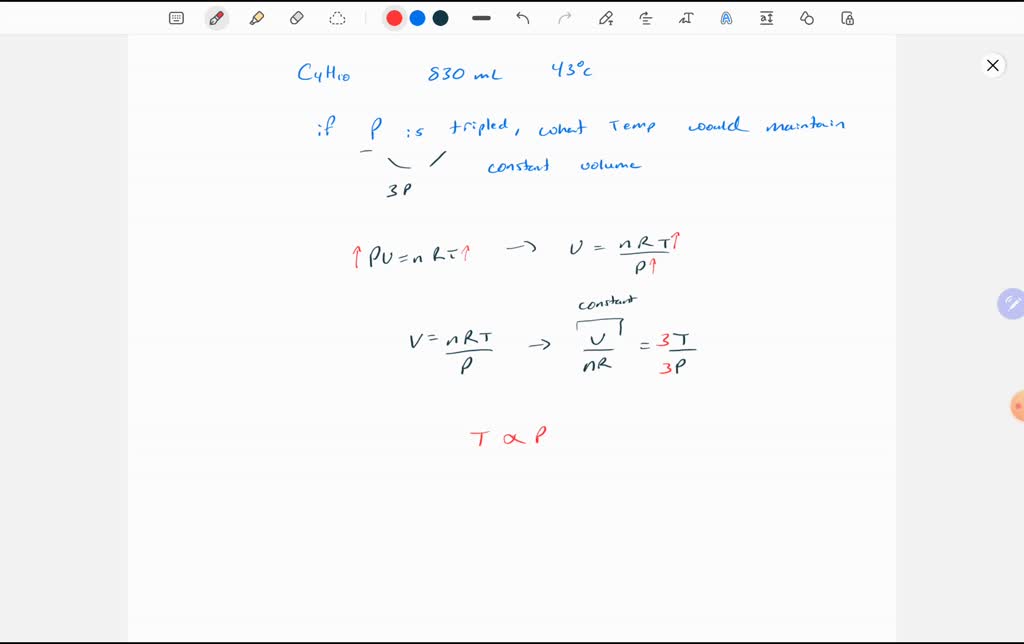 C4H10 830 mL 43°C
if P is tripled, what Temp would maintain
constant volume
3P
↑PV=nRT↑ → V = nRT↑/P↑
constant
V = nRT/P → V/nR = 3T/3P
T ∝ P